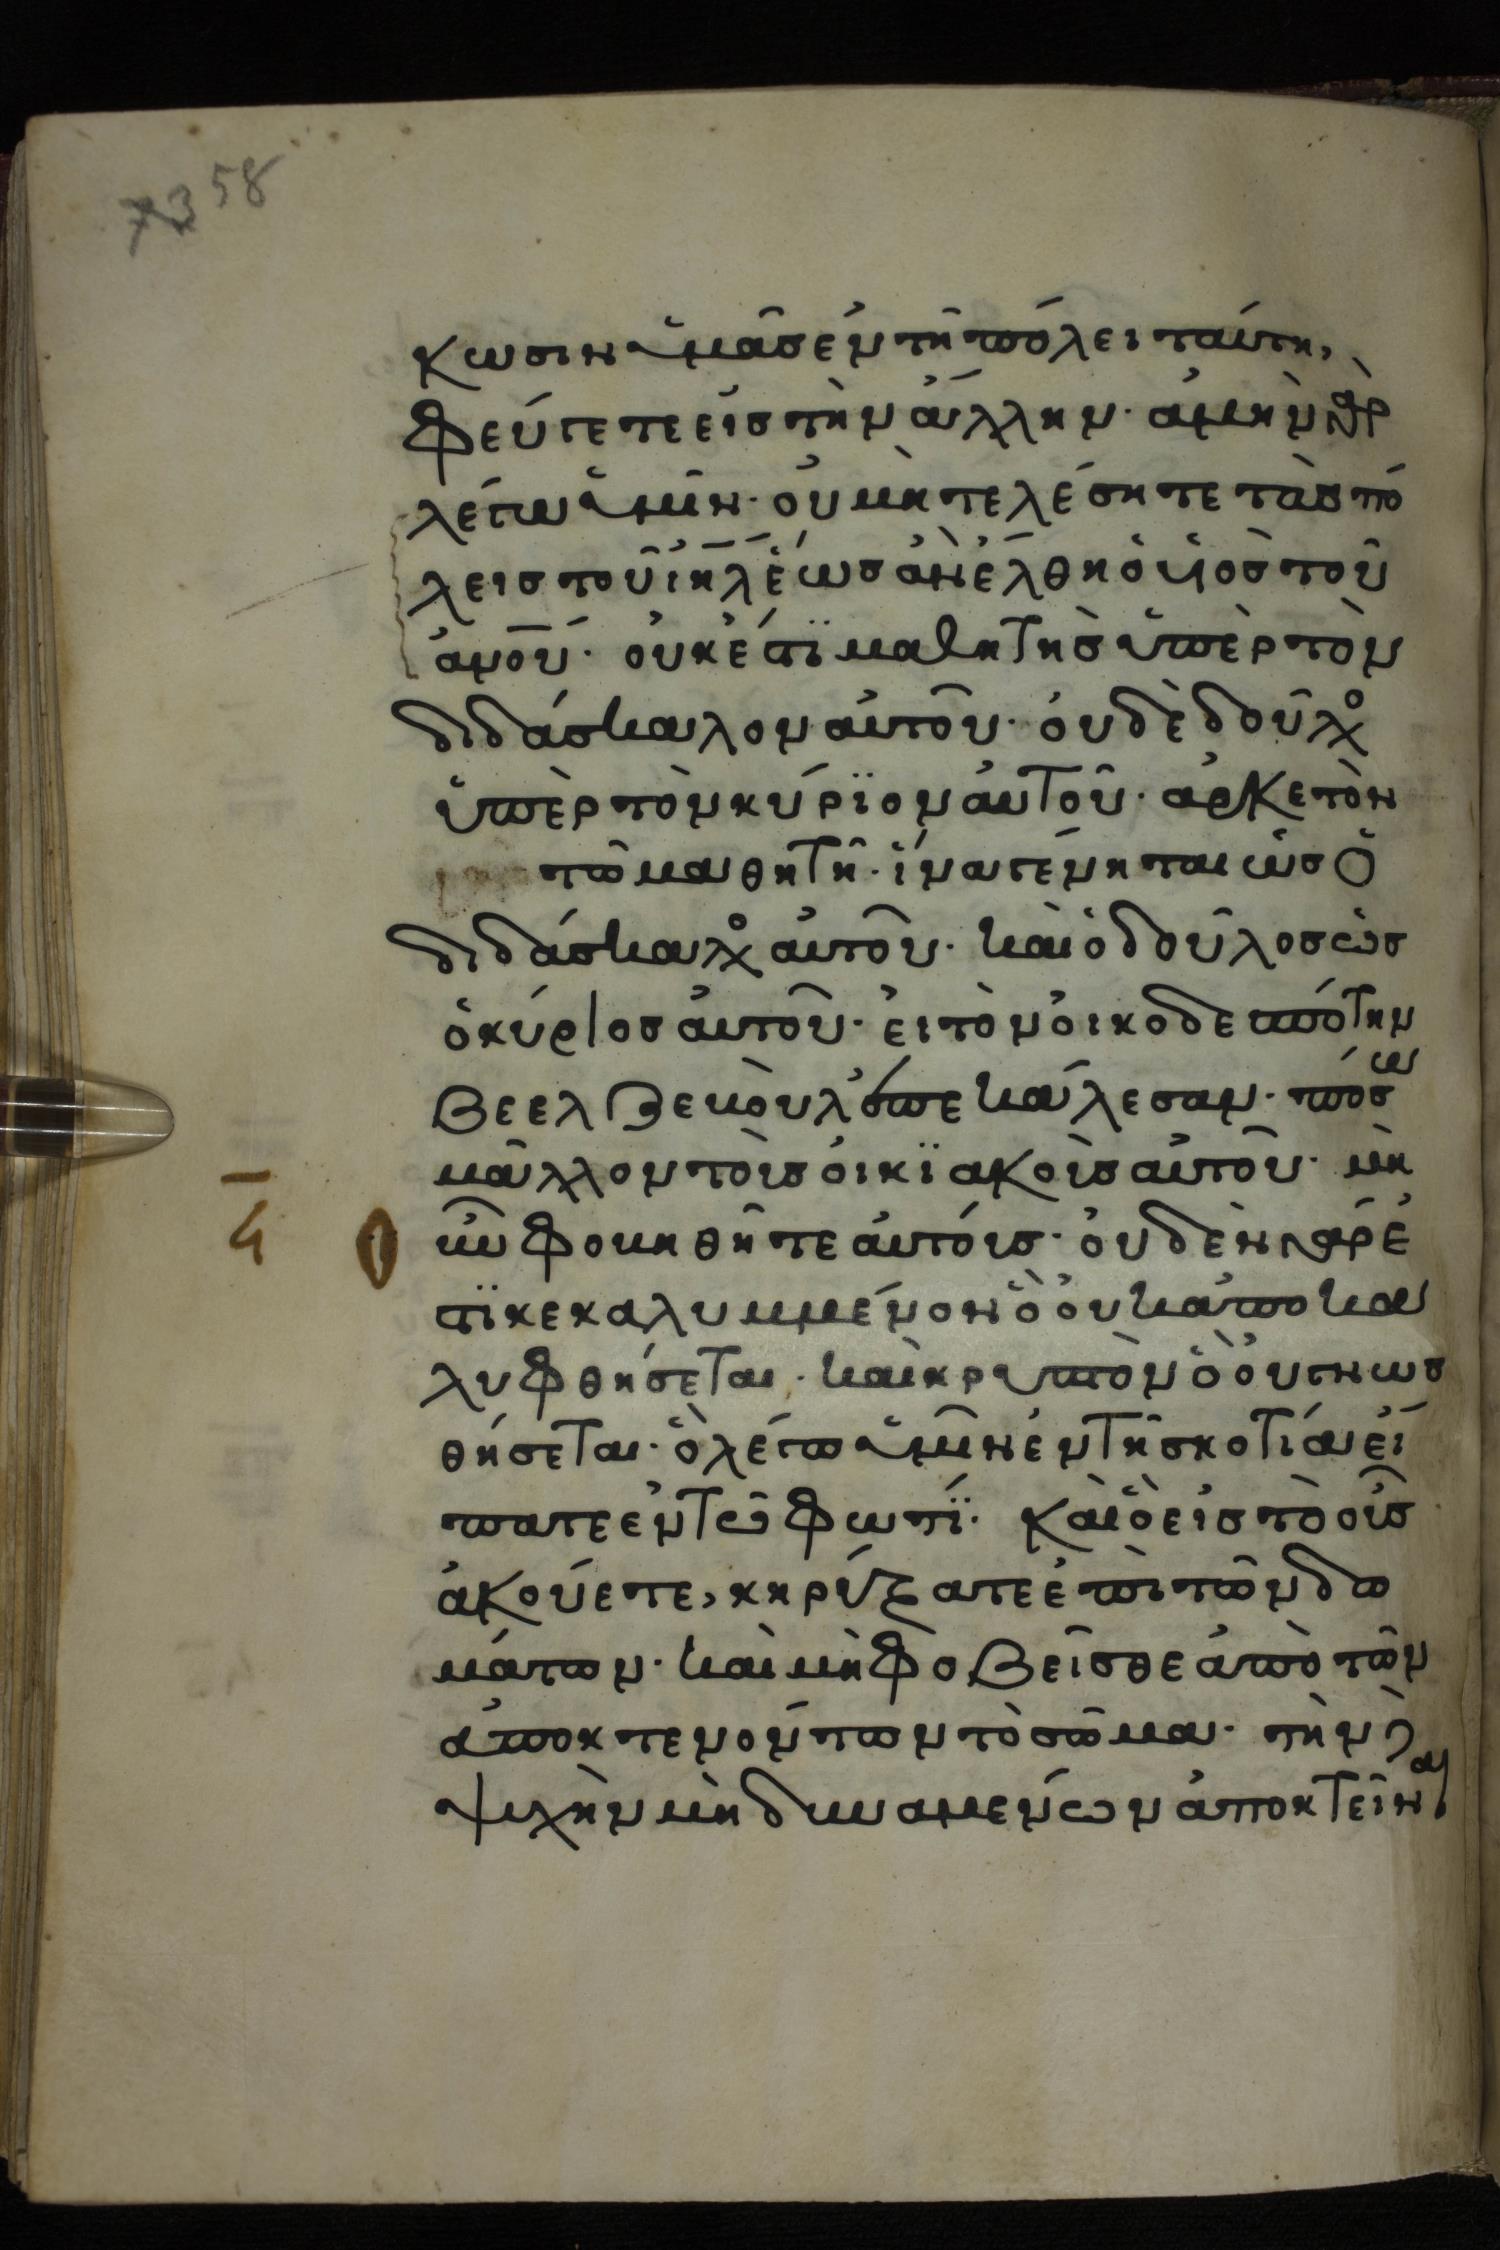 73 58
κωσιν ὑμᾶς ἐν τῆ πόλει ταύτη,
φεύγετε εἰς τὴν ἄλλην· ἀμὴν γὰρ
λέγω ὑμῖν· οὐ μὴ τελέσητε τὰς πό
λεις τοῦ ἰη̅λ̅ ἕως ἂν ἔλθη ὁ υἱὸς τοῦ
ἀν̅ου̅· οὐκ ἔστϊ μαθητὴς ὑπὲρ τὸν
διδάσκαλον αὐτοῦ· οὐδὲ δοῦλο
ὑπὲρ τὸν κύρϊον αὐτοῦ· ἀρκετὸν
τῶ μαθητῆ· ἵνα γένηται ὡς ὁ
διδάσκαλο αὐτοῦ· καὶ ὁ δοῦλος ὡς
ὁ κύριος αὐτοῦ· εἰ τὸν οἰκοδεσπότην
βεελζεβοὺλ ἐκάλεσαν· πόσω
μᾶλλον τοὺς οἰκϊακοὺς αὐτοῦ· μὴ
οὖν φοβηθῆτε αὐτούς· οὐδὲν γάρ ἐ
στϊ κεκαλυμμένον ὃ οὐκ ἀποκα
λυφθήσεται· καὶ κρυπτὸν ὃ οὐ γνωσ
θήσεται· ὃ λέγω ὑμῖν ἐν τῆ σκοτία εἴ
πατε ἐν τῶ φωτΐ· καὶ ὃ εἰς τὸ οὖς
ἀκούετε, κηρύξατε ἐπὶ τῶν δω
μάτων· καὶ μὴ φοβεῖσθε ἀπὸ τῶν
ἀποκτενόντων τὸ σῶμα· τὴν δὲ
ψυχὴν μὴ δυναμένων ἀποκτεῖναι